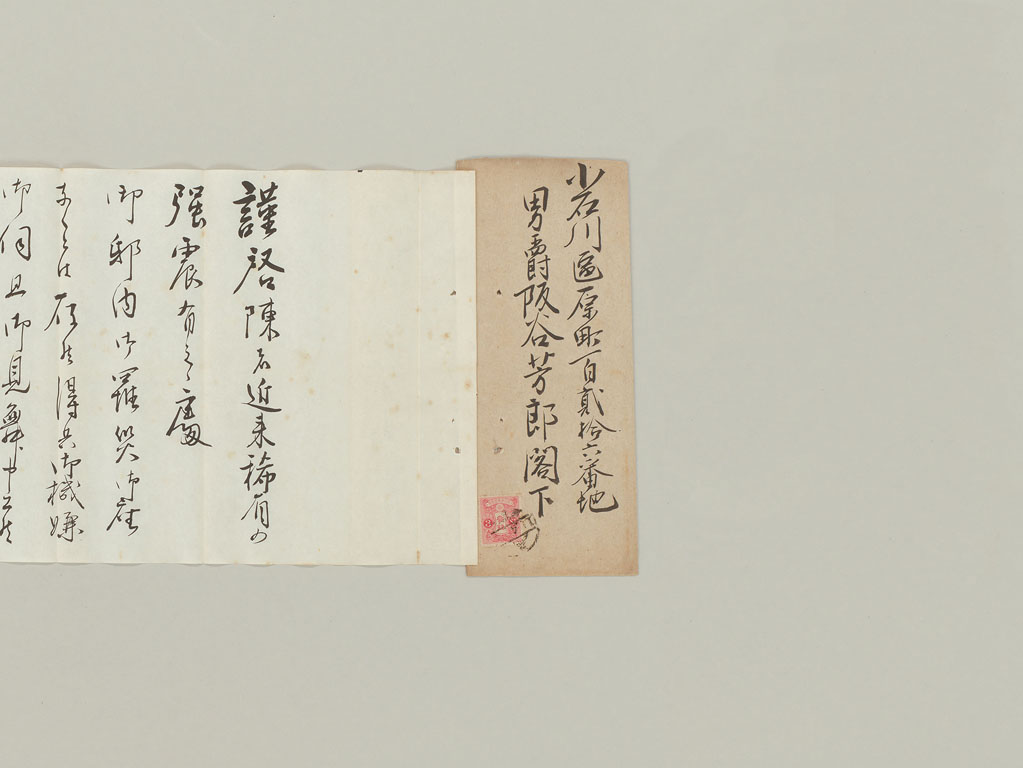 小石川區原町百貳拾六番地
男爵阪谷芳郎閣下
謹啓陳者近来稀有の
强震有之處
御邸内御羅災御座
なく候
御伺且御見舞申上候